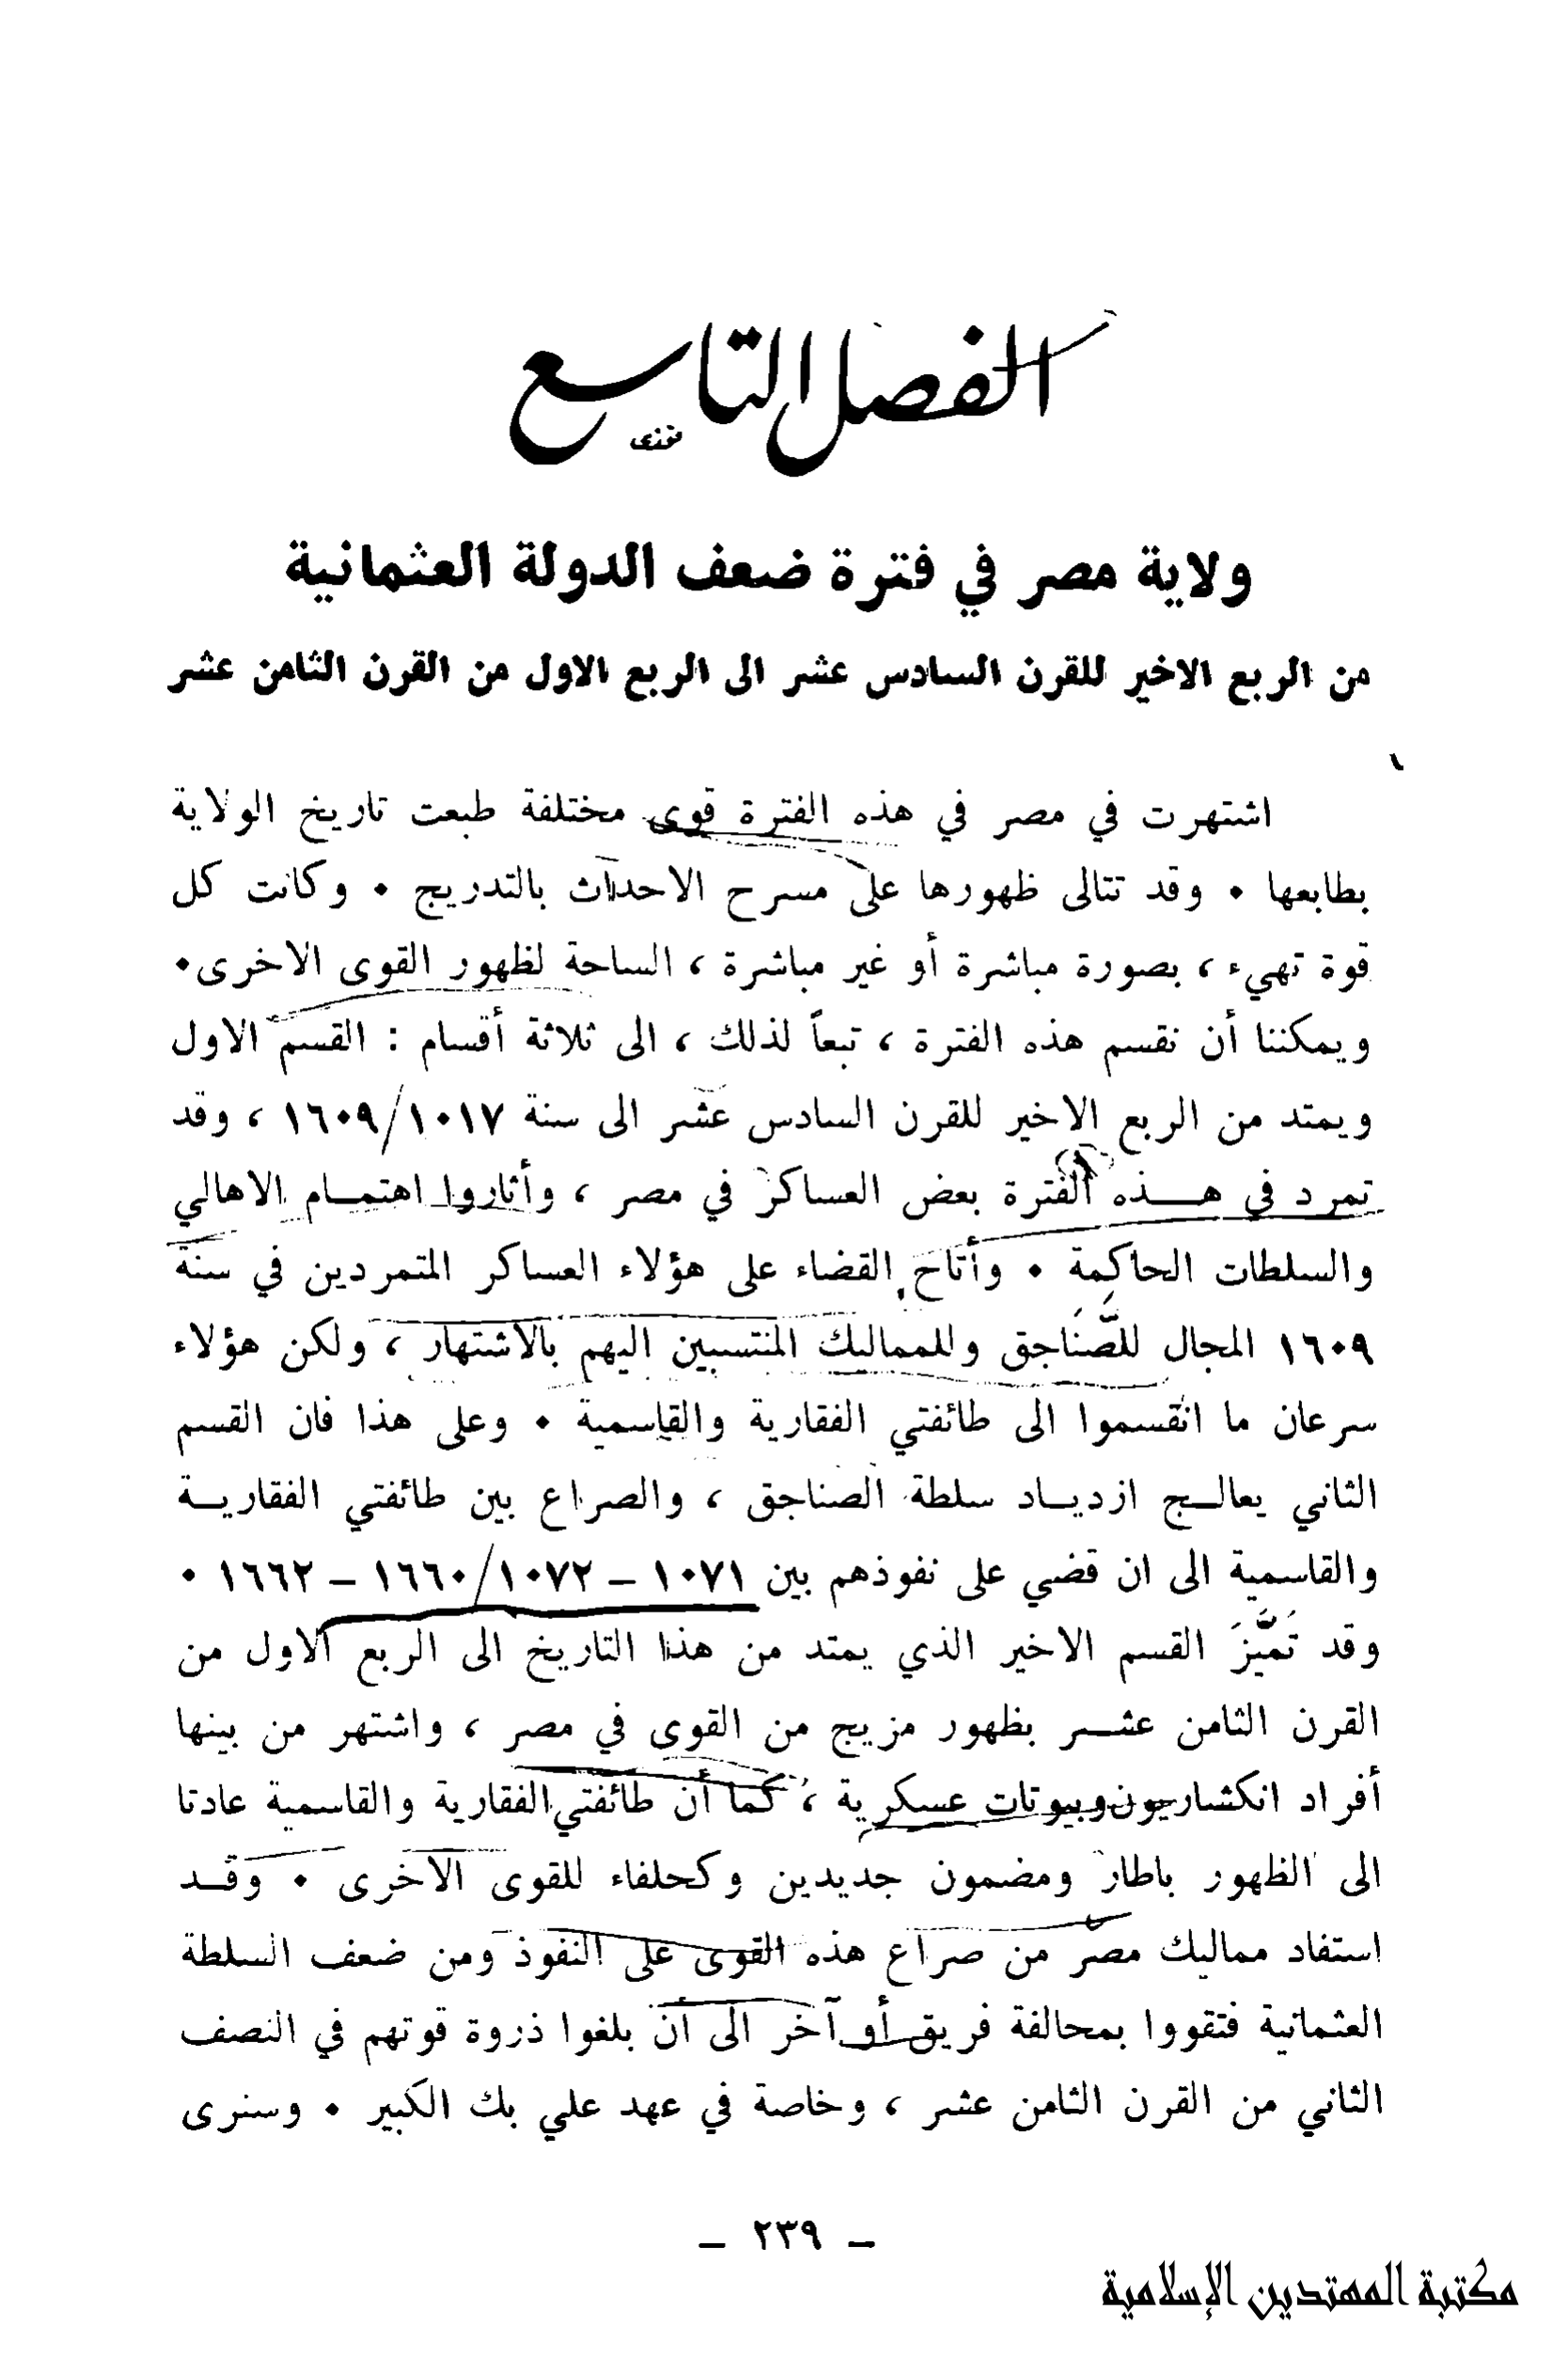 الفصل التاسع
فوزي
ولاية مصر في فترة ضعف الدولة العثمانية
من الربع الاخير للقرن السادس عشر الى الربع الاول من القرن الثامن عشر
اشتهرت في مصر في هذه الفترة قوى مختلفة طبعت تاريخ الولاية
بطابعها . وقد تتالى ظهورها على مسرح الاحداث بالتدريج . وكانت كل
قوة تهيء ، بصورة مباشرة أو غير مباشرة ، الساحة لظهور القوى الاخرى .
ويمكننا أن نقسم هذه الفترة ، تبعاً لذلك ، الى ثلاثة أقسام : القسم الاول
ويمتد من الربع الاخير للقرن السادس عشر الى سنة ١٠١٧/١٦٠٩ ، وقد
تمرد في هـــذه الفترة بعض العساكر في مصر ، وأثاروا اهتمــام الاهالي
والسلطات الحاكمة . وأتاح القضاء على هؤلاء العساكر المتمردين في سنة
١٦٠٩ المجال للصَّنَاجق وللمماليك المنتسبين اليهم بالاشتهار ، ولكن هؤلاء
سرعان ما انقسموا الى طائفتي الفقارية والقاسمية . وعلى هذا فان القسم
الثاني يعالــج ازديــاد سلطة الصناجق ، والصراع بين طائفتي الفقاريــة
والقاسمية الى ان قضي على نفوذهم بين ١٠٧١ – ١٠٧٢/١٦٦٠ – ١٦٦٢ .
وقد تَمَيَّزَ القسم الاخير الذي يمتد من هذا التاريخ الى الربع الاول من
القرن الثامن عشــر بظهور مزيج من القوى في مصر ، واشتهر من بينها
أفراد انكشاريون وبيوتات عسكرية ، كما أن طائفتي الفقارية والقاسمية عادتا
الى الظهور باطار ومضمون جديدين وكحلفاء للقوى الاخرى . وقــد
استفاد مماليك مصر من صراع هذه القوى على النفوذ ومن ضعف السلطة
العثمانية فتقووا بمحالفة فريق أو آخر الى أن بلغوا ذروة قوتهم في النصف
الثاني من القرن الثامن عشر ، وخاصة في عهد علي بك الكبير . وسنرى
– ٢٣٩ –
مكتبة المهتدين الإسلامية